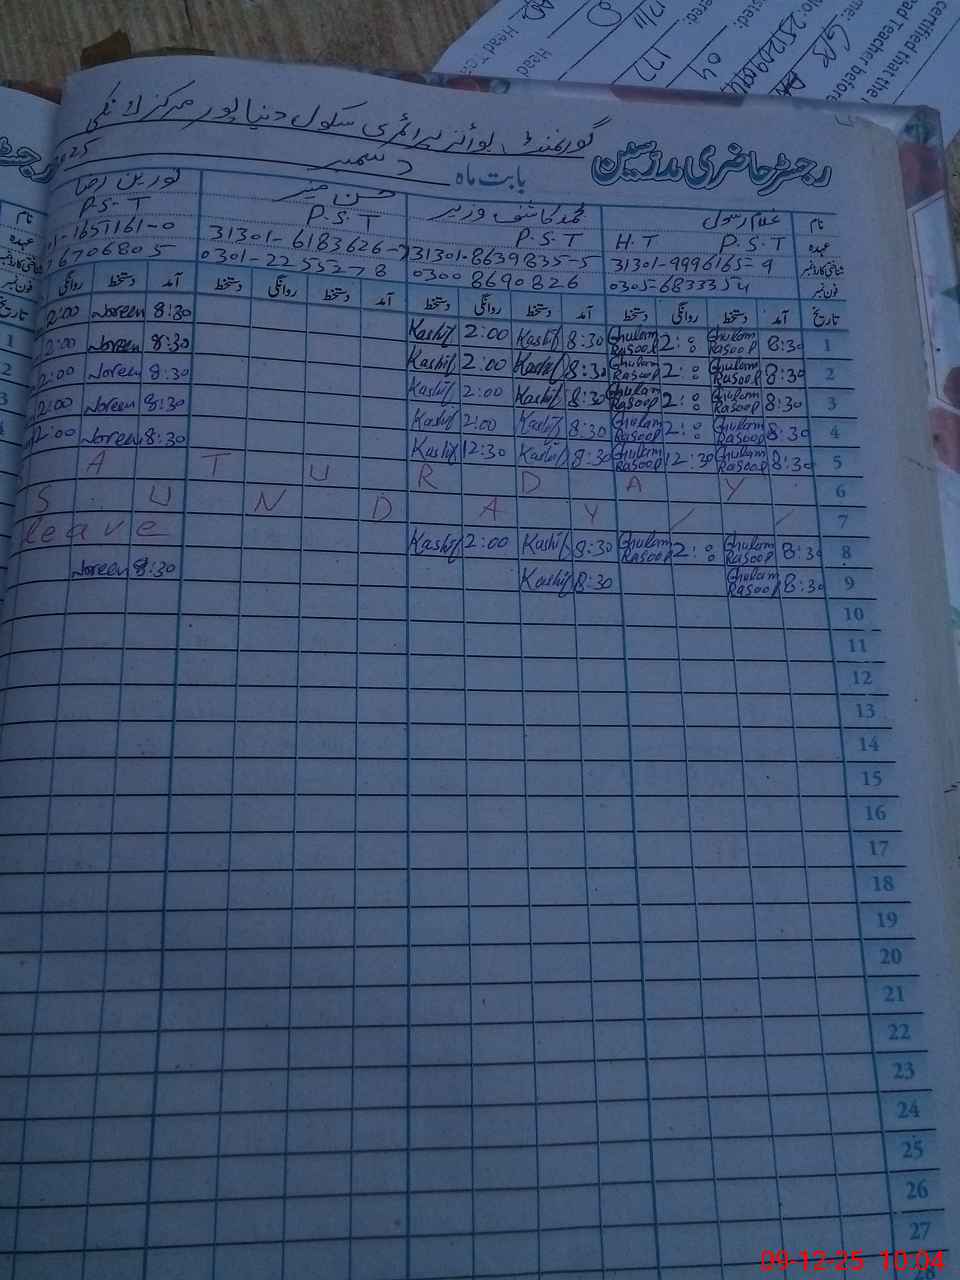 رجسٹر حاضری مدرسین گورنمنٹ بوائز پرائمری سکول دنیا پور مرکز
بابت ماہ دسمبر 2025
نام غلام رسول محمد کاشف وزیر حسن منیر نورین رضا
عہدہ P.S.T H.T P.S.T P.S.T P.S.T
شناختی کارڈ نمبر 31301-9996165-9 31301-8639835-5 31301-6183626- 01-1651161-0
فون نمبر 0305-6833354 0300 8690826 0301-2255278 6706805
تاریخ آمد دستخط روانگی دستخط آمد دستخط روانگی دستخط آمد دستخط روانگی دستخط آمد دستخط روانگی
1 8:30 Ghulam Rasool 2:00 Ghulam Rasool 8:30 Kashif 2:00 Kashif 8:30 Noreen 2:00
2 8:30 Ghulam Rasool 2:00 Ghulam Rasool 8:30 Kashif 2:00 Kashif 8:30 Noreen 2:00
3 8:30 Ghulam Rasool 2:00 Ghulam Rasool 8:30 Kashif 2:00 Kashif 8:30 Noreen 2:00
4 8:30 Ghulam Rasool 2:00 Ghulam Rasool 8:30 Kashif 2:00 Kashif 8:30 Noreen 2:00
5 8:30 Ghulam Rasool 12:30 Ghulam Rasool 8:30 Kashif 12:30 Kashif 8:30 Noreen 2:00
6 A T U R D A Y
7 S U N D A Y
8 8:30 Ghulam Rasool 2:00 Ghulam Rasool 8:30 Kashif 2:00 Kashif leave
9 8:30 Ghulam Rasool 8:30 Kashif 8:30 Noreen
10
11
12
13
14
15
16
17
18
19
20
21
22
23
24
25
26
27
certified that the
ead Teacher before
Head
09-12-25 10:04